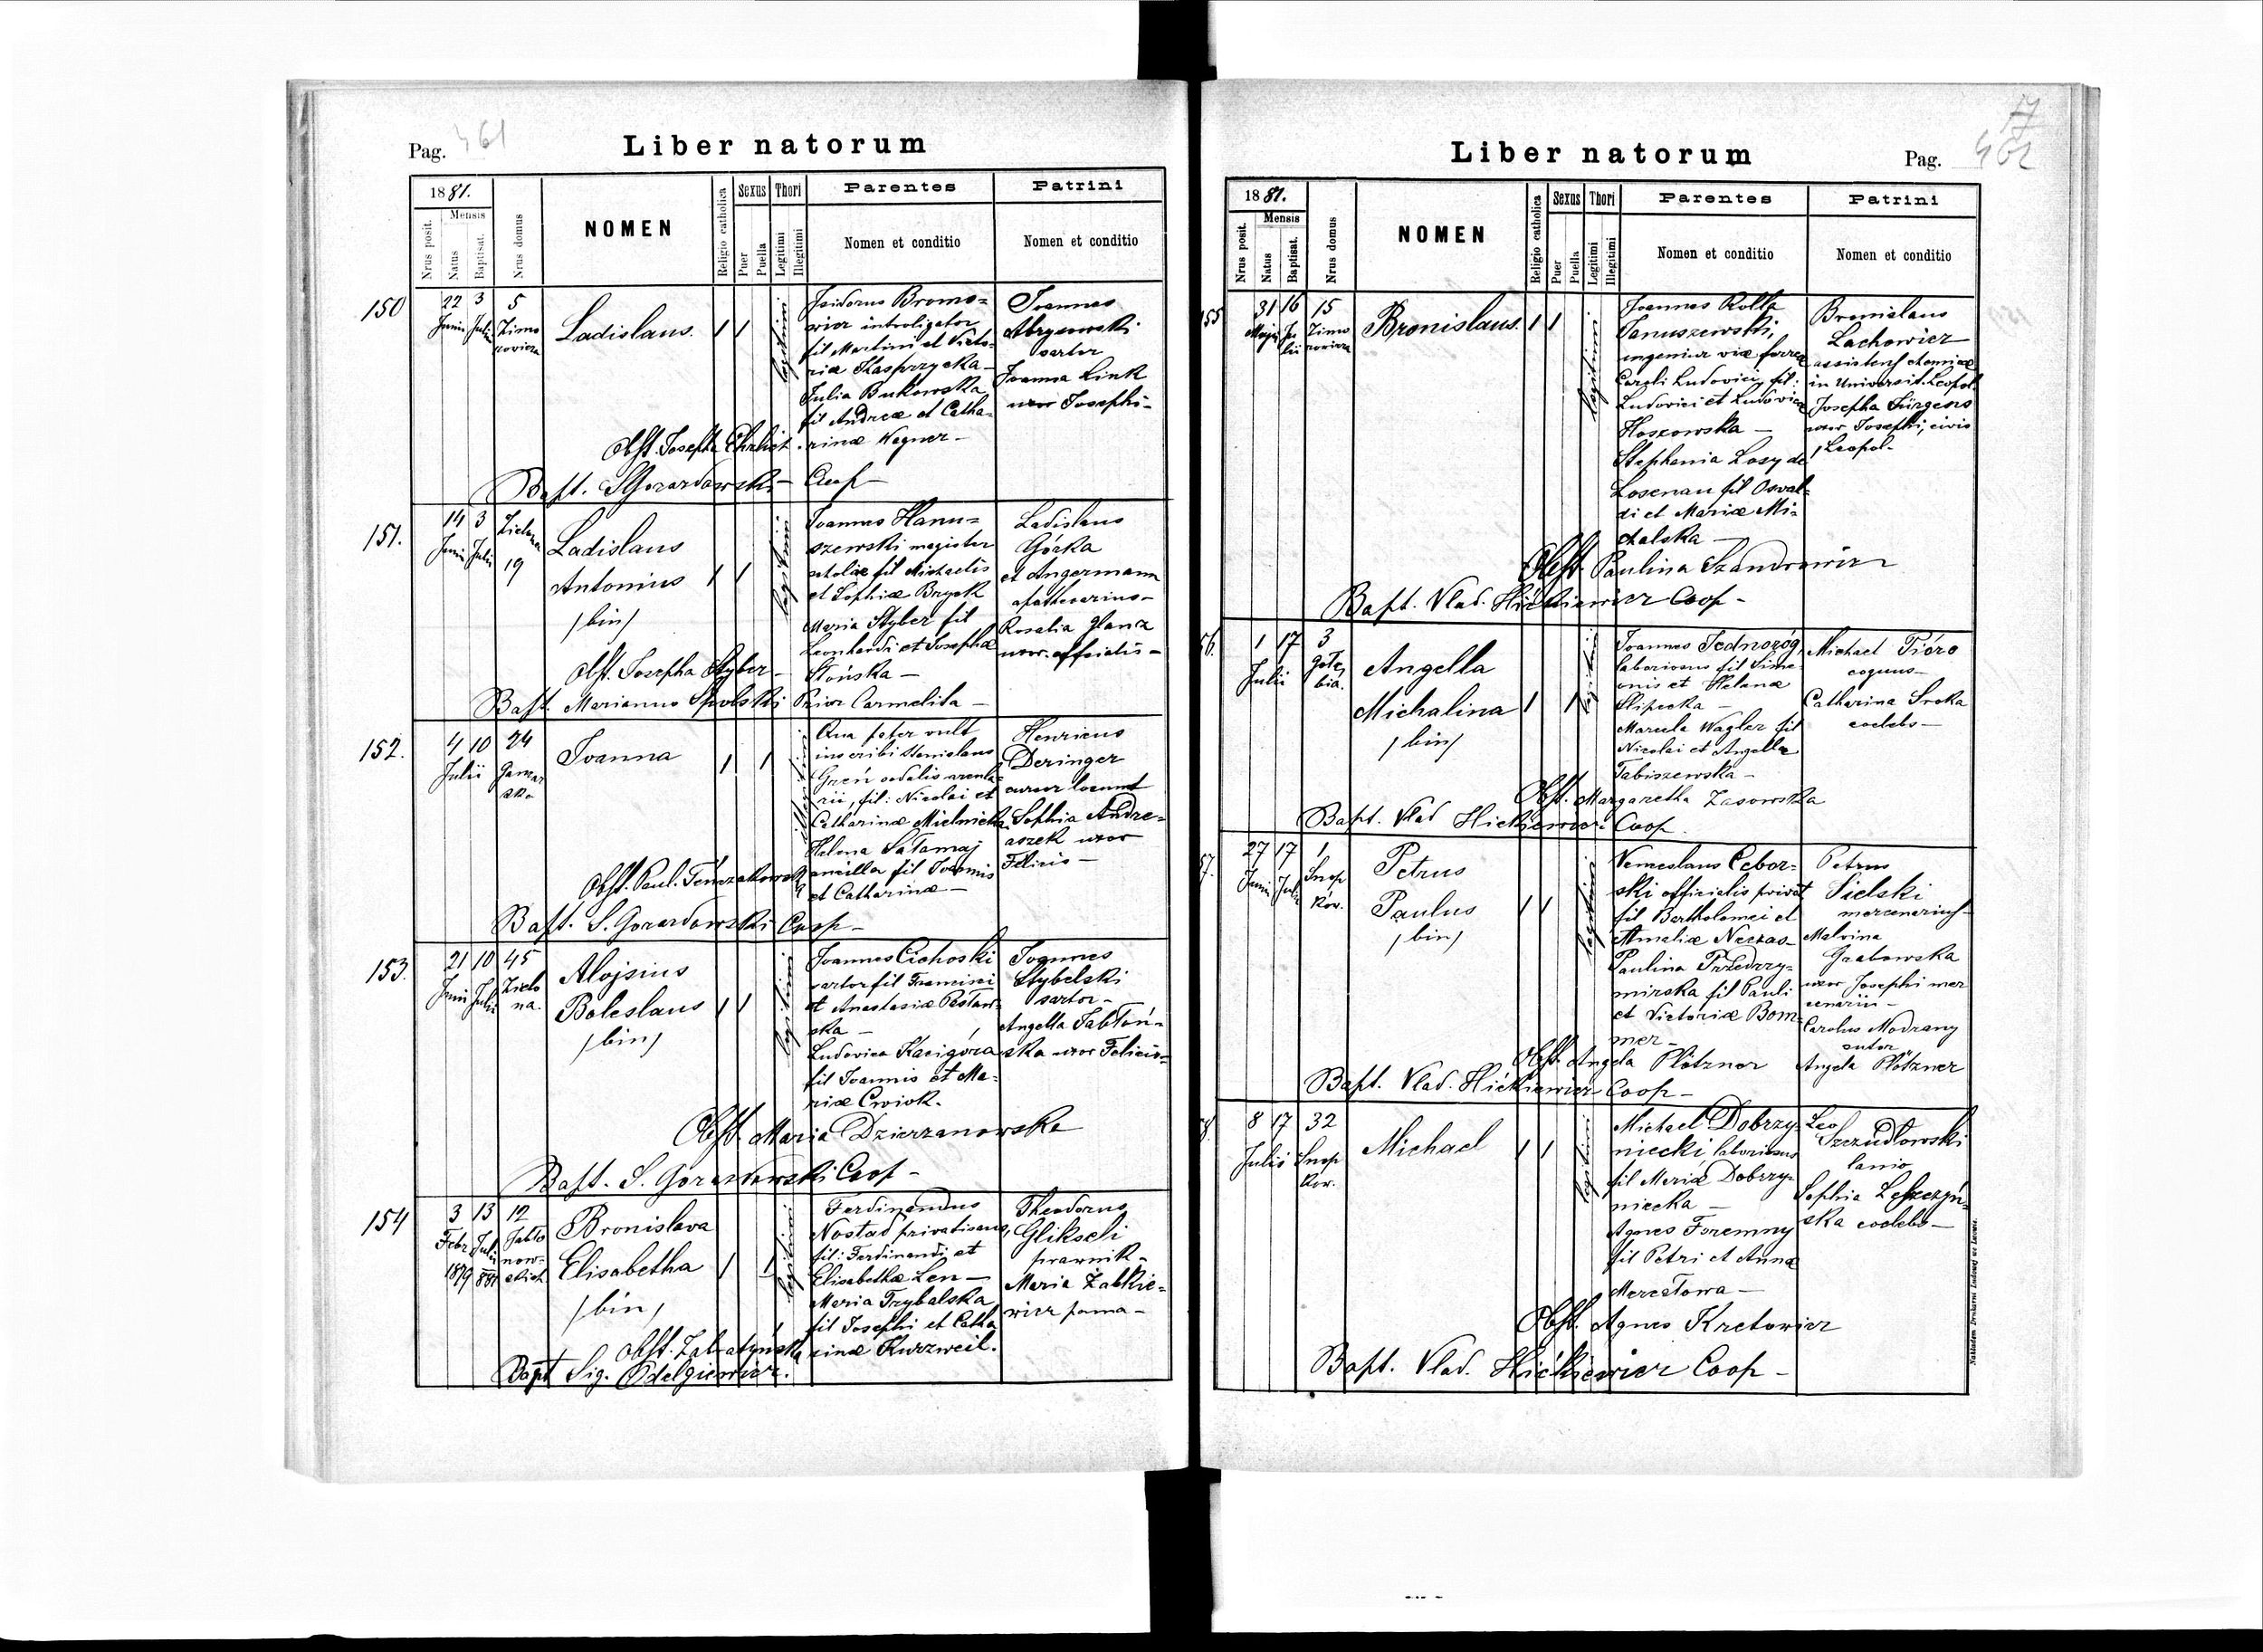 Pag. 461
Liber natorum
1881.
Nrus posit.
Mensis
Natus
Baptisat.
Nrus domus
NOMEN
Religio catholica
Sexus
Puer
Puella
Thori
Legitimi
Illegitimi
Parentes
Nomen et conditio
Patrini
Nomen et conditio
150
22 Junii
3 Julii
5 Zimo
rowicza
Ladislaus.
1 1
legitimi
Isidorus Bromo=
wicz introligator
fil Martini et Victo=
riæ Kasprzycka -
Julia Bukowska
fil Andreæ et Catha=
rinæ Wegner -
Joannes
sartor
Joanna Link
uxor Josephi -
Obst. Josepha Ehrlich
Bapt. S Gorazdowski - Coop -
151.
14 Junii
3 Julii
Zielona
19
Ladislaus
Antonius
/bin/
1 1
legitimi
Joannes Hanu=
szewski magister
scholæ fil Michaelis
et Sophiæ Bryck
Maria Styber fil
Leonhardi et Josepha
Słońska -
Ladislaus
Górka
et Angermann
Rosalia Glanz
uxor officialis -
Obst. Josepha Styber -
Bapt. Marianus Spolski Prior Carmelita -
152.
4 10
Julii
24
Gancar
ska
Joanna
1 1
Qua pater vult
inscribi Stanislaus
Greń sodalis arcula=
rii, fil: Nicolai et
Catharinæ Mielnicka
Helena Sałamaj
ancilla fil Joannis
et Catharinæ -
Henricus
Deringer
Sophia Andre=
aszek uxor
Felicis -
Obst. Paul.
Bapt. S. Gorazdowski Coop -
153.
21 Junii
10 Julii
45
Zielo
na.
Alojsius
Boleslaus
/bin/
1 1
legitimi
Joannes Cichoski
sartor fil Francisci
et Anastasiæ
ska -
Ludovica Kacigóra
fil Joannis et Ma=
riæ Cwiok.
Joannes
Stybelski
sartor -
Angella Jabłoń=
ska uxor Felicis -
Obst. Maria Dzierzanowska
Bapt. S. Gorazdowski Coop -
154
3 Febr 1879
13 Julii 881
12
Jabło
now=
skich
Bronislava
Elisabetha
/bin/
1 1
legitimi
Ferdinandus
Nostad privatisans,
fil: Ferdinandi et
Elisabethæ Len -
Maria Trybalska
fil Josephi et Catha
rinæ Kurzweil.
Theodorus
Glikseli
prawnik -
Maria Żabkie=
wicz panna -
Bapt Sig. Odelgiewicz.
Liber natorum
Pag. 462
1881.
Nrus posit.
Mensis
Natus
Baptisat.
Nrus domus
NOMEN
Religio catholica
Sexus
Puer
Puella
Thori
Legitimi
Illegitimi
Parentes
Nomen et conditio
Patrini
Nomen et conditio
155
31 Maji
16 Ju
lii
15
Zimo
rowicza
Bronislaus.
1 1
legitimi
Joannes Rolla
Januszewski,
ingenieur viæ ferreæ
Caroli Ludovici, fil:
Ludovici et Ludovicæ
Hoszowska -
Stephania Losy de
Losenau fil Oswal=
di et Mariæ Mi=
chalska -
Bronislaus
Lachowicz
assistens chemiæ
in Universit. Leopol.
Josepha Jürgens
uxor Josephi, civis
Leopol -
Obst. Paulina Szandrowicz
Bapt. Vlad. Hićkiewicz Coop -
56.
1 17
Julii
3
Gołę
bia.
Angella
Michalina
/bin/
1 1
Joannes Jednoróg,
laboriosus fil Sime
onis et Helenæ
Slipecka -
Marula Wagler fil
Nicolai et Angellæ
Tabiszewska -
Michael Pióro
coquus -
Catharina Sroka
coelebs -
Obst. Margaretha Zasowska
Bapt. Vlad Hićkiewicz Coop.
57.
27 Junii
17 Julii
1
Snop
kow.
Petrus
Paulus
/bin/
1 1
legitimi
Venceslaus Cebor=
ski officialis privat
fil Bartholomei et
Amaliæ Neczas -
Paulina Przedrzy=
mirska fil Pauli
et Victoriæ Bom=
mer -
Petrus
Sielski
mercenarius -
Malvina
Grabowska
uxor Josephi mer
cenarii -
Carolus Modrany
sutor
Angela Plötzner
Obst. Angela Plötzner
Bapt. Vlad. Hićkiewicz Coop -
58.
8 17
Julii
32
Snop
kow.
Michael
1 1
Michael Dobrzy=
niecki laboriosus
fil Mariæ Dobrzy=
niecka -
Agnes Foremny
fil Petri et Annæ
Marcełowa -
Leo
Szczudłowski
lanio
Sophia Leszczyń=
ska coelebs -
Obst. Agnes Kretowicz
Bapt. Vlad. Hićkiewicz Coop -
Nakładem Drukarni Ludowej we Lwowie.